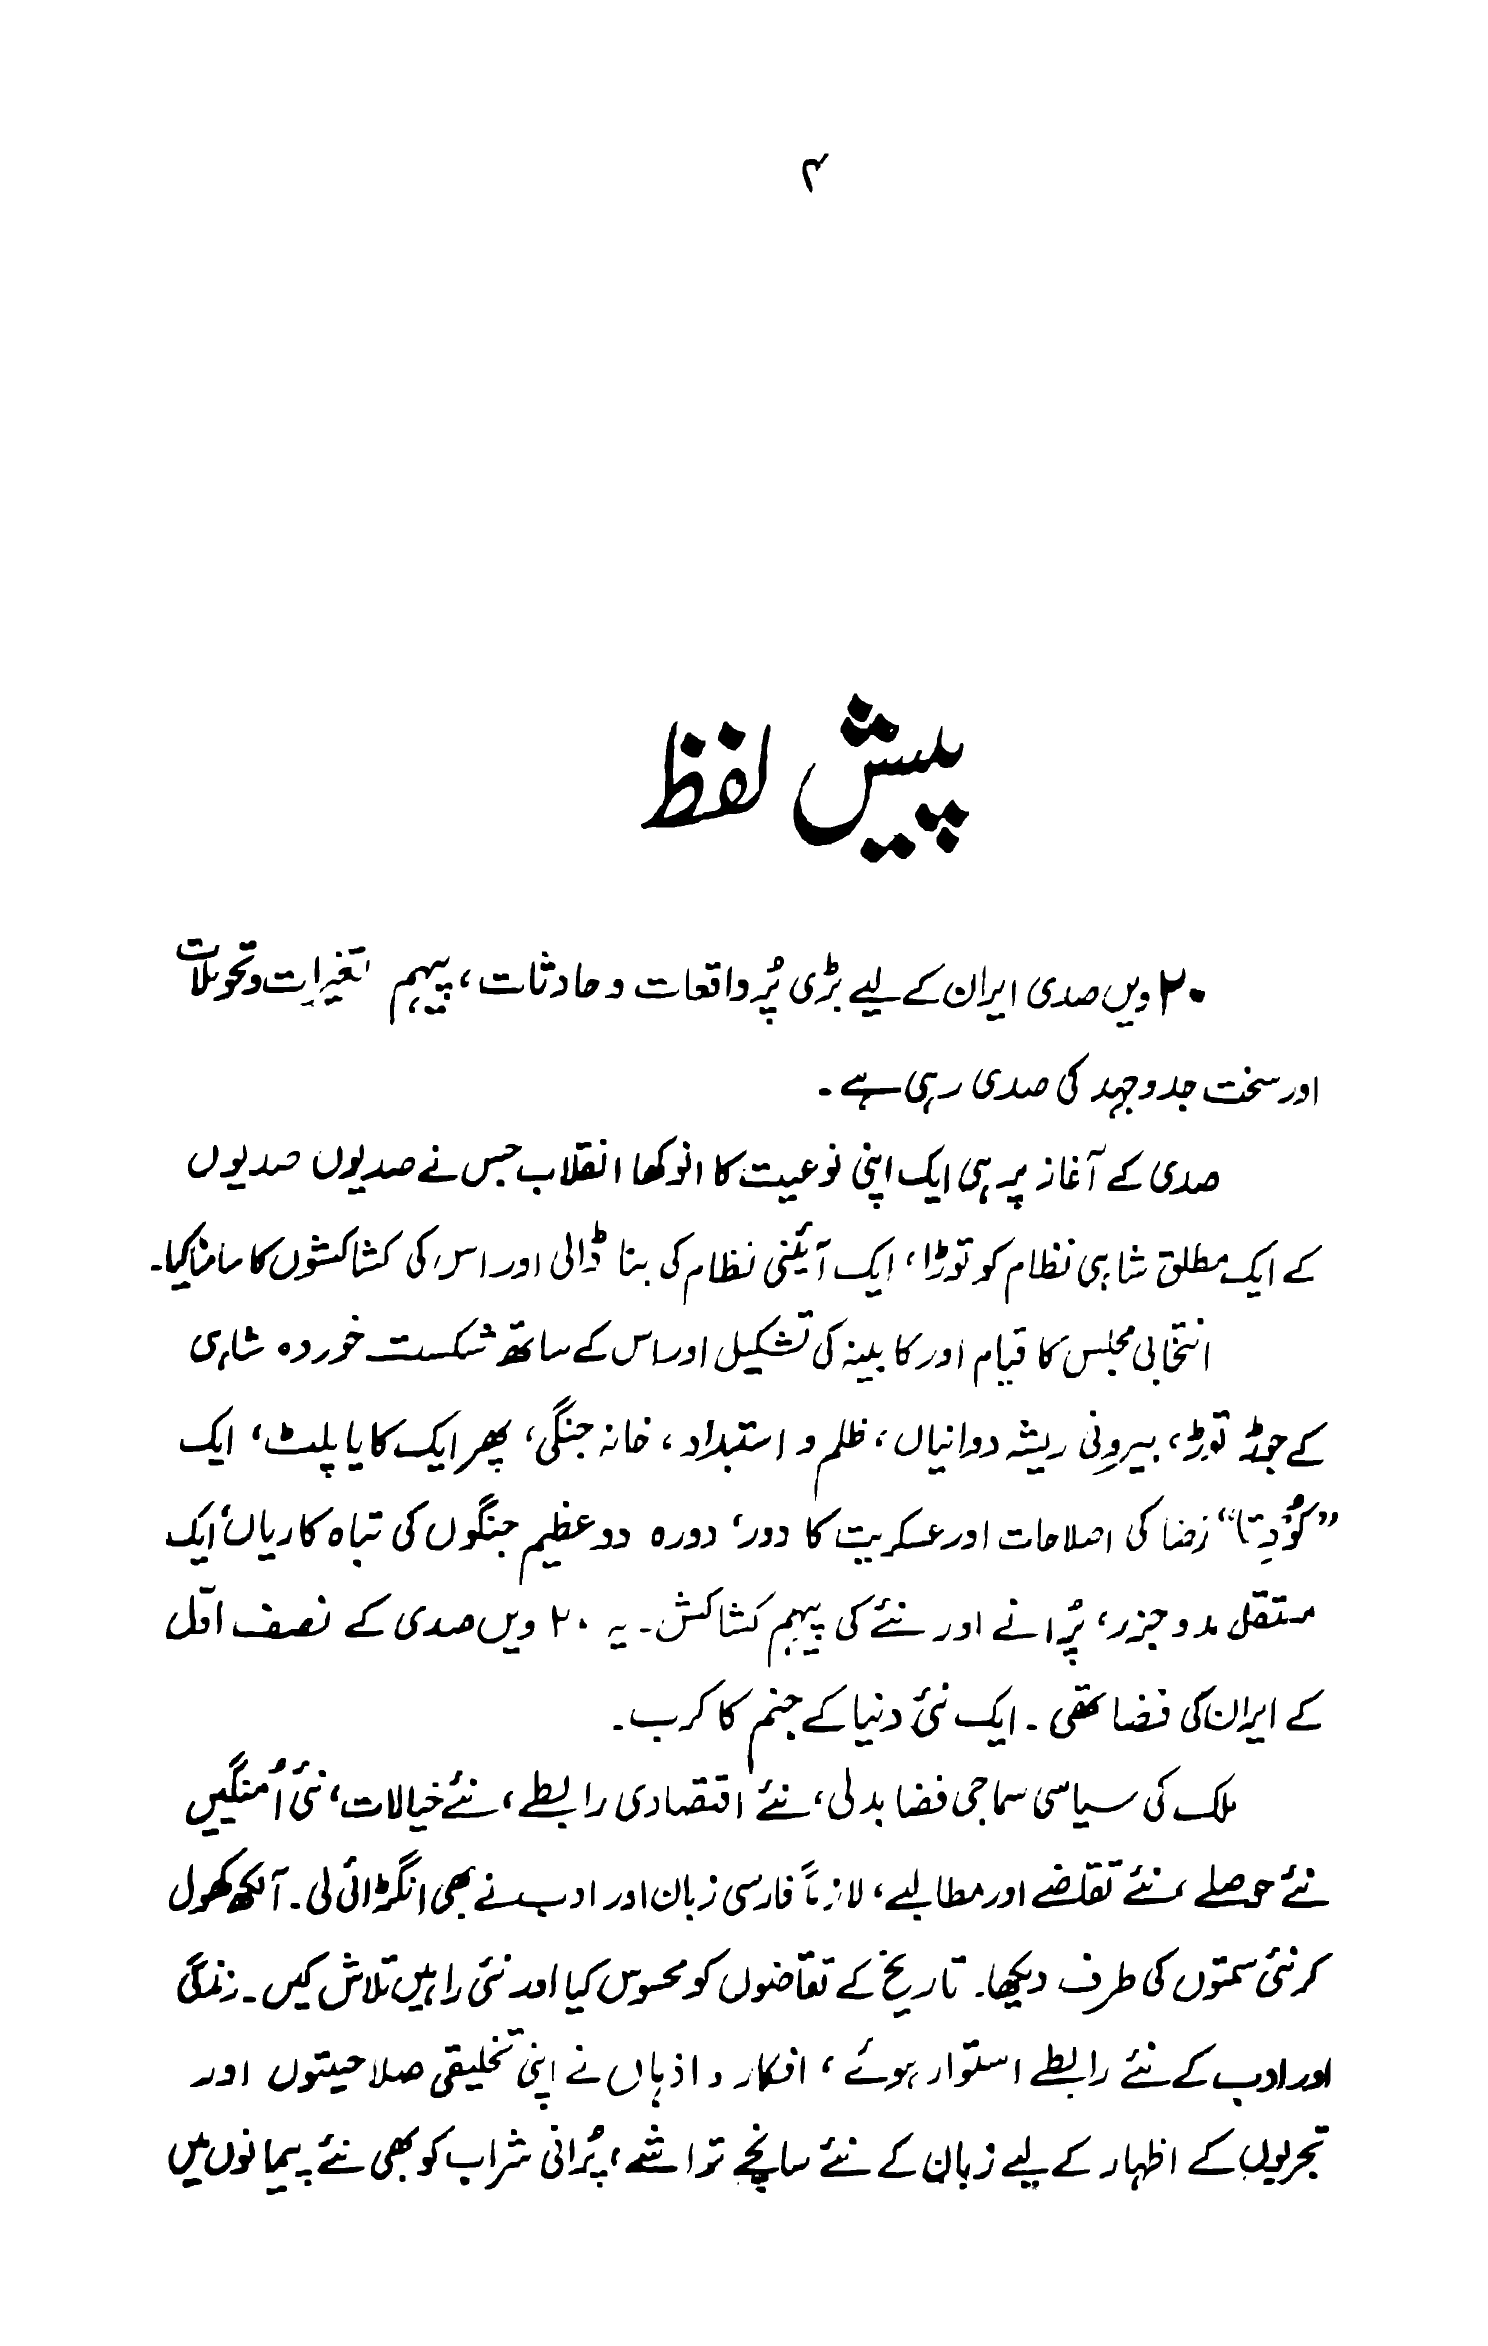 ۴
پیش لفظ
۲۰ ویں صدی ایران کے لیے بڑی پُر واقعات و حادثات، پیہم تغیرات و تحولات
اور سخت جدوجہد کی صدی رہی ہے۔
صدی کے آغاز پر ہی ایک اپنی نوعیت کا انوکھا انقلاب جس نے صدیوں صدیوں
کے ایک مطلق شاہی نظام کو توڑا، ایک آئینی نظام کی بنا ڈالی اور اس کی کشاکشوں کا سامنا کیا۔
انتخابی مجلس کا قیام اور کابینہ کی تشکیل اور اس کے ساتھ شکست خوردہ شاہی
کے جوڑ توڑ، بیرونی ریشہ دوانیاں، ظلم و استبداد، خانہ جنگی، پھر ایک کایا پلٹ، ایک
”کوُدِتا“ رضا کی اصلاحات اور عسکریت کا دور، دورہ دو عظیم جنگوں کی تباہ کاریاں، ایک
مستقل مدو جزر، پُرانے اور نئے کی پیہم کشاکش۔ یہ ۲۰ ویں صدی کے نصف اوّل
کے ایران کی فضا تھی۔ ایک نئی دنیا کے جنم کا کرب۔
ملک کی سیاسی سماجی فضا بدلی، نئے اقتصادی رابطے، نئے خیالات، نئی اُمنگیں
نئے حوصلے، نئے تقاضے اور مطالبے، لازماً فارسی زبان اور ادب نے بھی انگڑائی لی۔ آنکھ کھول
کر نئی سمتوں کی طرف دیکھا۔ تاریخ کے تقاضوں کو محسوس کیا اور نئی راہیں تلاش کیں۔ زندگی
اور ادب کے نئے رابطے استوار ہوئے، افکار و اذہان نے اپنی تخلیقی صلاحیتوں اور
تجربوں کے اظہار کے لیے زبان کے نئے سانچے تراشے، پُرانی شراب کو بھی نئے پیمانوں میں